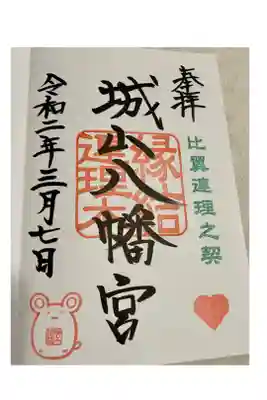 奉拝
比翼連理之契
城山八幡宮
縁結
連理木
令和二年三月七日